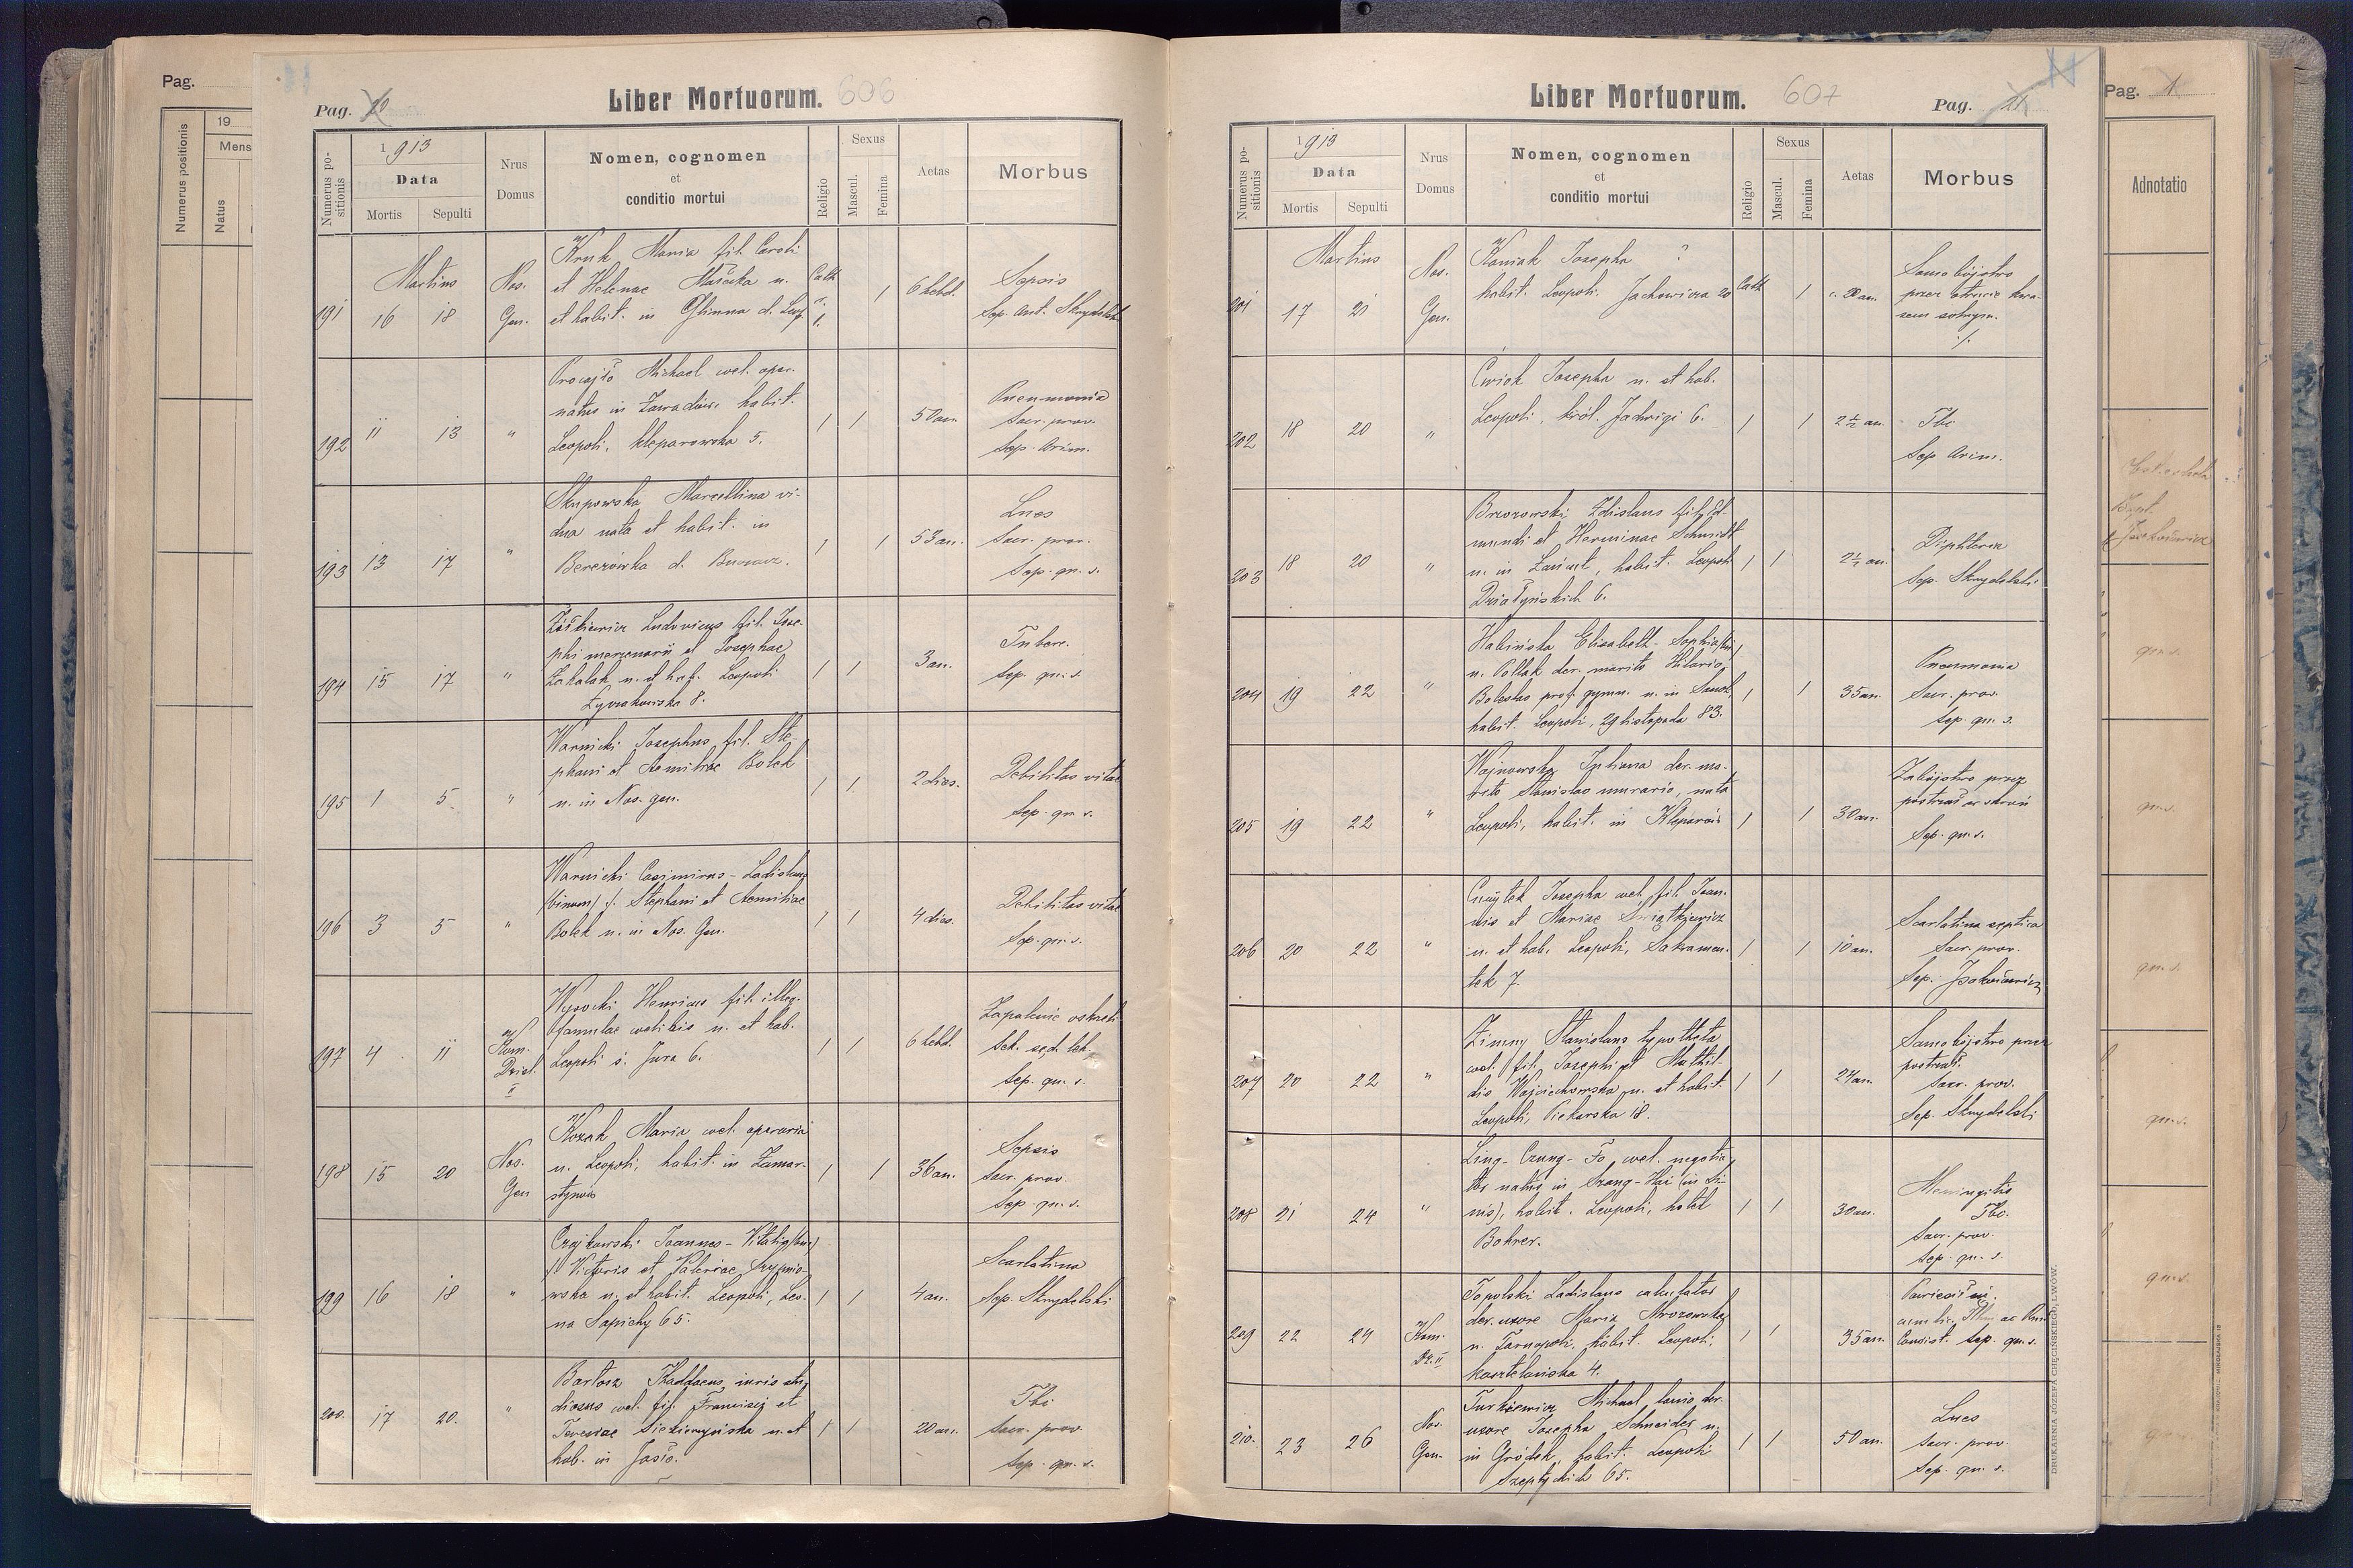 Pag.
Numerus positionis
19
Mens
Natus
Pag. 20
Liber Mortuorum. 606
Numerus positionis
1913
Data
Mortis
Sepulti
Nrus Domus
Nomen, cognomen
et
conditio mortui
Religio
Sexus
Mascul.
Femina
Aetas
Morbus
191
Martius
16 18
Nos.
Gen.
Kruk Maria fil. Caroli
et Helenae n.
et habit. in Glinna d. Leop.
Cath
1
6 hebd.
Sepsis
Sep. Ant. Skrzydelski
192
11 13
"
Michael coel. oper.
natus in habit.
Leopoli, Kleparowska 5.
1 1
50 an.
Pneumonia
Sacr. prov.
Sep. Arim.
193
13 17
"
Skupowska Marcellina vi-
dua nata et habit. in
Berezówka d.
1 1
53 an.
Lues
Sacr. prov.
Sep. qu. s.
194
15 17
"
Ludovicus fil. Jose-
phi mercenarii et Josephae
Zahalak n. et hab. Leopoli
Żyzakowska 8.
1 1
3 an.
Tuberc.
Sep. qu. s.
195
1 5
"
Warnicki Josephus fil. Ste-
phani et Aemiliae Bolek
n. in Nos. gen.
1 1
2 dies.
Debilitas vitae
Sep. qu. s.
196
3 5
"
Warnicki Casimirus - Ladislaus
(binom) f. Stephani et Aemiliae
Bolek n. in Nos. Gen.
1 1
4 dies.
Debilitas vitae
Sep. qu. s.
197
4 11
Kom.
Dziel.
II
Wysocki Henricus fil. illeg.
famulae coelibis n. et hab.
Leopoli ś. Jura 6.
1 1
6 hebd.
Zapalenie oskrzeli
Sek. sąd. lek.
Sep. qu. s.
198
15 20
Nos.
Gen
Kozak Maria coel. operaria
n. Leopoli, habit. in Zamar-
stynów
1 1
36 an.
Sepsis
Sacr. prov.
Sep. qu. s.
199
16 18
"
Czajkowski Joannes - Vitalis (bin)
f. Victoris et Valeriae
wska n. et habit. Leopoli, Leo-
na Sapiehy 65.
1 1
4 an.
Scarlatina
Sep. Skrzydelski
200.
17 20.
"
Bartosz Thaddaeus, iuris stu-
diosus coel. fil. Francisci et
Teresiae n. et
hab. in Jasło.
1 1
20 an.
Tbc
Sacr. prov.
Sep. qu. s.
Liber Mortuorum. 607
Pag. 21
Numerus positionis
1913
Data
Mortis
Sepulti
Nrus Domus
Nomen, cognomen
et
conditio mortui
Religio
Sexus
Mascul.
Femina
Aetas
Morbus
201
Martius
17 21
Nos.
Gen.
Koniak Josepha ?
habit. Leopoli. Jachowicza 20
Cath
1
Samobójstwo
przez otrucie kwa-
sem solnym.
./.
202
18 20
"
Ćwiok Josepha n. et hab.
Leopoli, król. Jadwigi 6.
1 1
2 1/2 an.
Tbc
Sep Arim.
203
18 20
"
Brzozowski Zdislaus fil. Ed-
mundi et Herminae Schmidt
n. in habit. Leopoli
Działyńskich 6.
1 1
2 1/2 an.
Diphteria
Sep. Skrzydelski
204
19 22
"
Habińska Elisabeth - Sophia (bin)
n. Pollak der. marito Hilario
Boleslao prof. gymn. n. in
habit. Leopoli, 29 listopada 83.
1 1
35 an.
Pneumonia
Sacr. prov.
Sep. qu. s.
205
19 22
"
Wojnowska Juliana der. ma-
rito Stanislao murario, nata
Leopoli, habit. in Kleparów
1 1
30 an.
Zabójstwo przez
postrzał w skroń
Sep. qu. s.
206
20 22
"
Josepha coel. fil. Joan-
nis et Mariae Świątkiewicz
n. et hab. Leopoli, Sakramen-
tek 7.
1 1
10 an.
Scarlatina septica
Sacr. prov.
Sep.
207
20 22
"
Zimny Stanislaus typotheta
coel. fil. Josephi et Mathil-
dis Wojciechowska n. et habit.
Leopoli, Piekarska 18.
1 1
24 an.
Samobójstwo przez
postrzał.
Sacr. prov.
Sep. Skrzydelski
208
21 24
"
Ling - Czung - Fo, coel. negotia-
tor natus in Szang-Hai (in Si-
nis), habit. Leopoli, hotel
Bohrer.
1 1
30 an.
Meningitis
Tbc.
Sacr. prov.
Sep. qu. s.
209
22 24
Kom.
Dz. II
Topolski Ladislaus calculator
der. uxore Maria Mrozowska
n. Tarnopoli, habit. Leopoli,
Kasztelańska 4.
1 1
35 an.
Powiesił się.
Consist. Sep. qu. s.
210.
23 26
Nos.
Gen.
Turkiewicz Michael lanio der.
uxore Josepha Schneider n.
in Gródek, habit. Leopoli
Szeptyckich 65.
1 1
50 an.
Lues
Sacr. prov.
Sep. qu. s.
DRUKARNIA JÓZEFA CHĘCIŃSKIEGO, LWÓW.
Pag. 1
Adnotatio
qu. s.
qu. s.
qu. s.
qu. s.
qu. s.